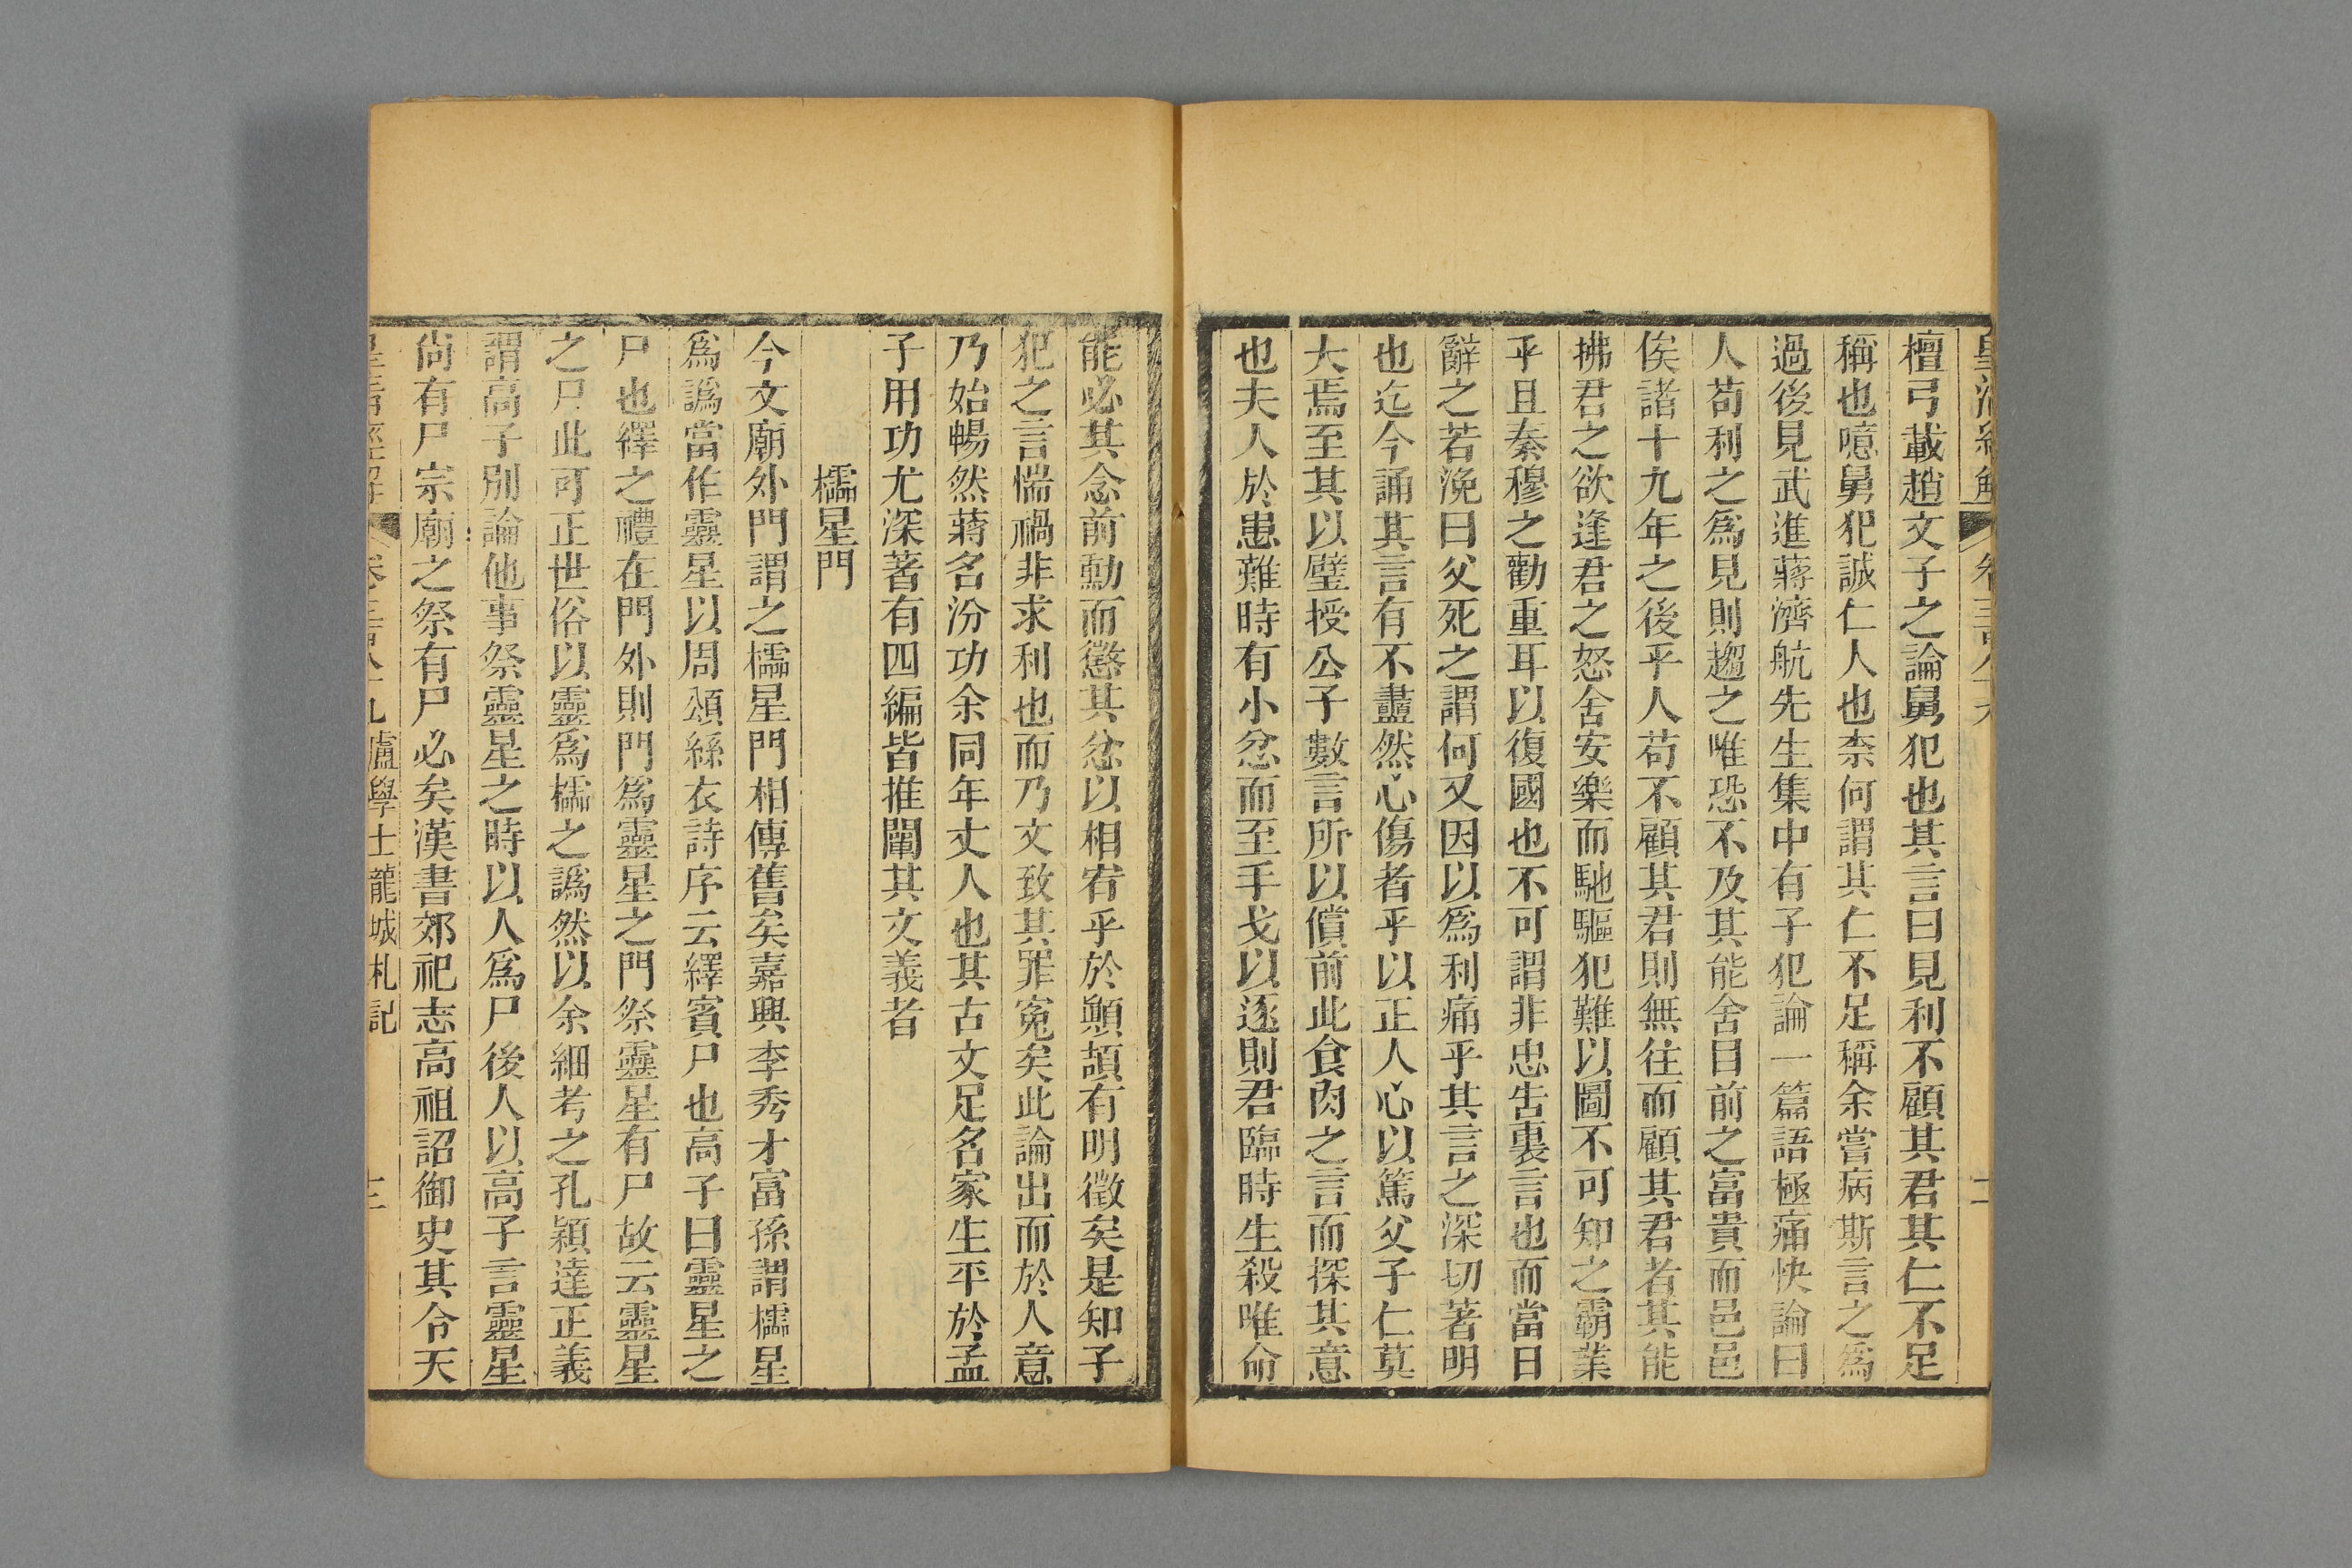 檀弓載趙文子之論舅犯也其言曰見利不顧其君其仁不足
稱也噫舅犯誠仁人也柰何謂其仁不足稱余嘗病斯言之爲
過後見武進蔣濟航先生集中有子犯論一篇語極痛快論曰
人苟利之爲見則趨之唯恐不及其能舍目前之富貴而邑邑
俟諸十九年之後乎人苟不顧其君則無往而顧其君者其能
拂君之欲逢君之怒舍安樂而馳驅犯難以圖不可知之霸業
乎且秦穆之勸重耳以復國也不可謂非忠告裏言也而當日
辭之若浼曰父死之謂何又因以爲利痛乎其言之深切著明
也迄今誦其言有不盡然心傷者乎以正人心以篤父子仁莫
大焉至其以璧授公子數言所以償前此食肉之言而探其意
也夫人於患難時有小忿而至手戈以逐則君臨時生殺唯命
能必其念前勳而懲其忿以相宥乎於顚頡有明徵矣是知子
犯之言惴禍非求利也而乃文致其罪寃矣此論出而於人意
乃始暢然蔣名汾功余同年丈人也其古文足名家生平於孟
子用功尤深著有四編皆推闡其文義者
櫺星門
今文廟外門謂之櫺星門相傳舊矣嘉興李秀才富孫謂櫺星
爲譌當作靈星以周頌絲衣詩序云繹賓尸也高子曰靈星之
尸也繹之禮在門外則門爲靈星之門祭靈星有尸故云靈星
之尸此可正世俗以靈爲櫺之譌然以余細考之孔穎達正義
謂高子別論他事祭靈星之時以人爲尸後人以高子言靈星
尚有尸宗廟之祭有尸必矣漢書郊祀志高祖詔御史其令天
皇清經解 卷三百八十九 盧學士龍城札記 十三